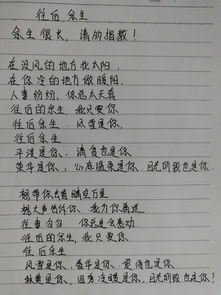 往后余生
余生很长，请多指教！
在没风的地方找太阳
在你冷的地方做暖阳
人事纷纷，你总太天真
往后的余生，我只要你
往后余生，风雪是你，
往后余生
平淡是你，清贫也是你
荣华是你，心底温柔是你，目光所致也是你
想带你去看晴空万里
想大声告诉你，我为你着迷
往事匆匆，你总会被感动
往后的余生，我只要你
往后余生
风雪是你，春华是你，夏雨也是你
秋黄是你，四季冷暖是你，目光所致也是你！